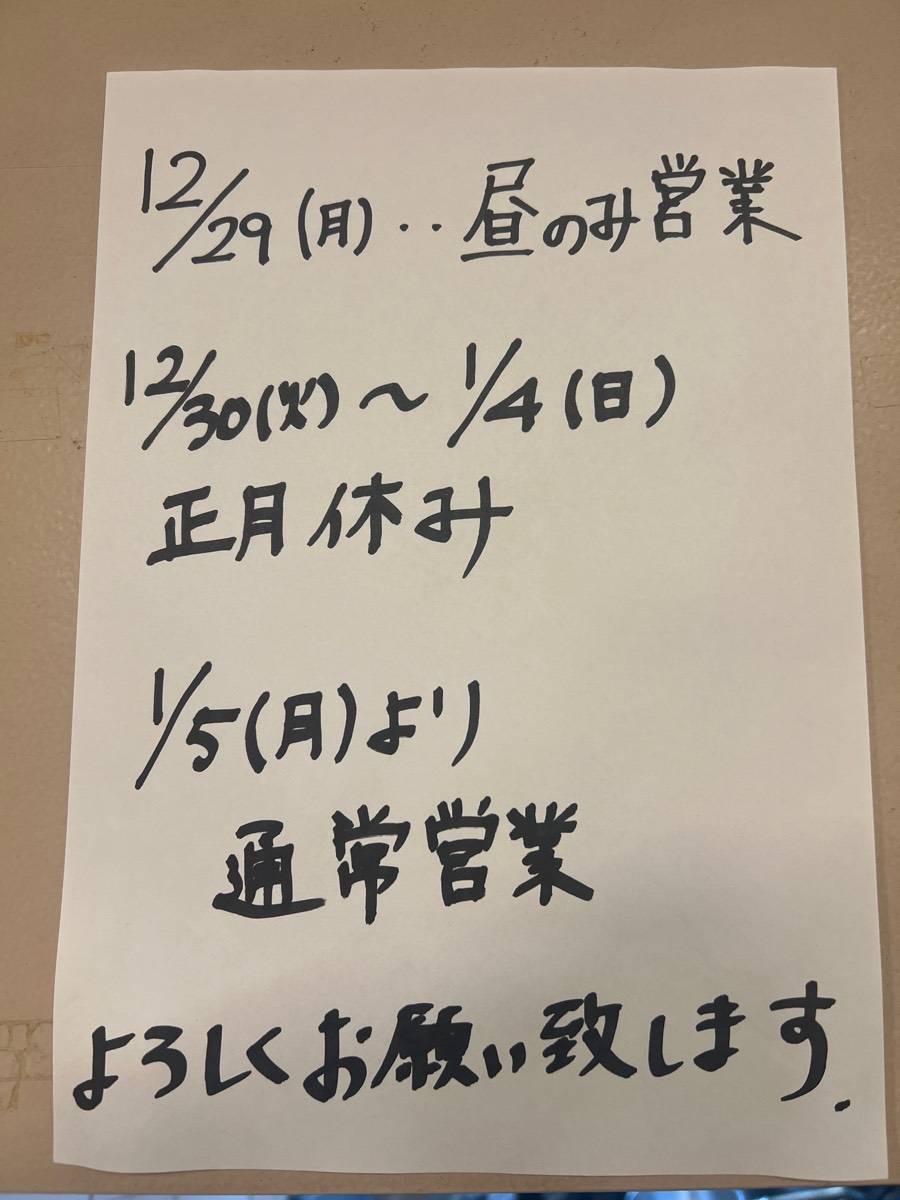 12/29(月)‥昼のみ営業
12/30(火)〜1/4(日)
正月休み
1/5(月)より
通常営業
よろしくお願い致します.